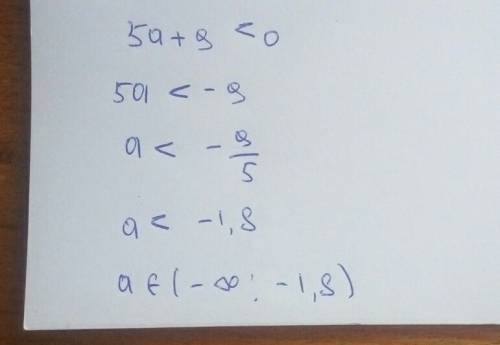 5a + 9 < 0
5a < - 9
a < - 9/5
a < -1,8
a ∈ (- ∞ ; -1,8)